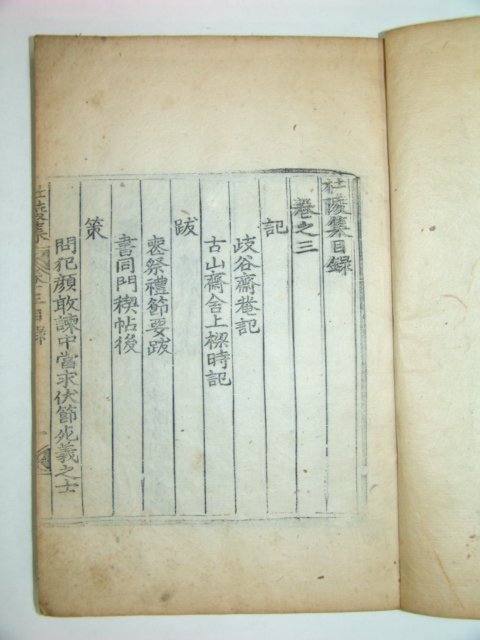 杜陵集目錄
卷之三
記
歧谷齋菴記
古山齋舍上樑時記
跋
喪祭禮節要跋
書同門稧帖後
策
問犯顔敢諫中當求伏節死義之士
杜陵集 卷之三目錄 一